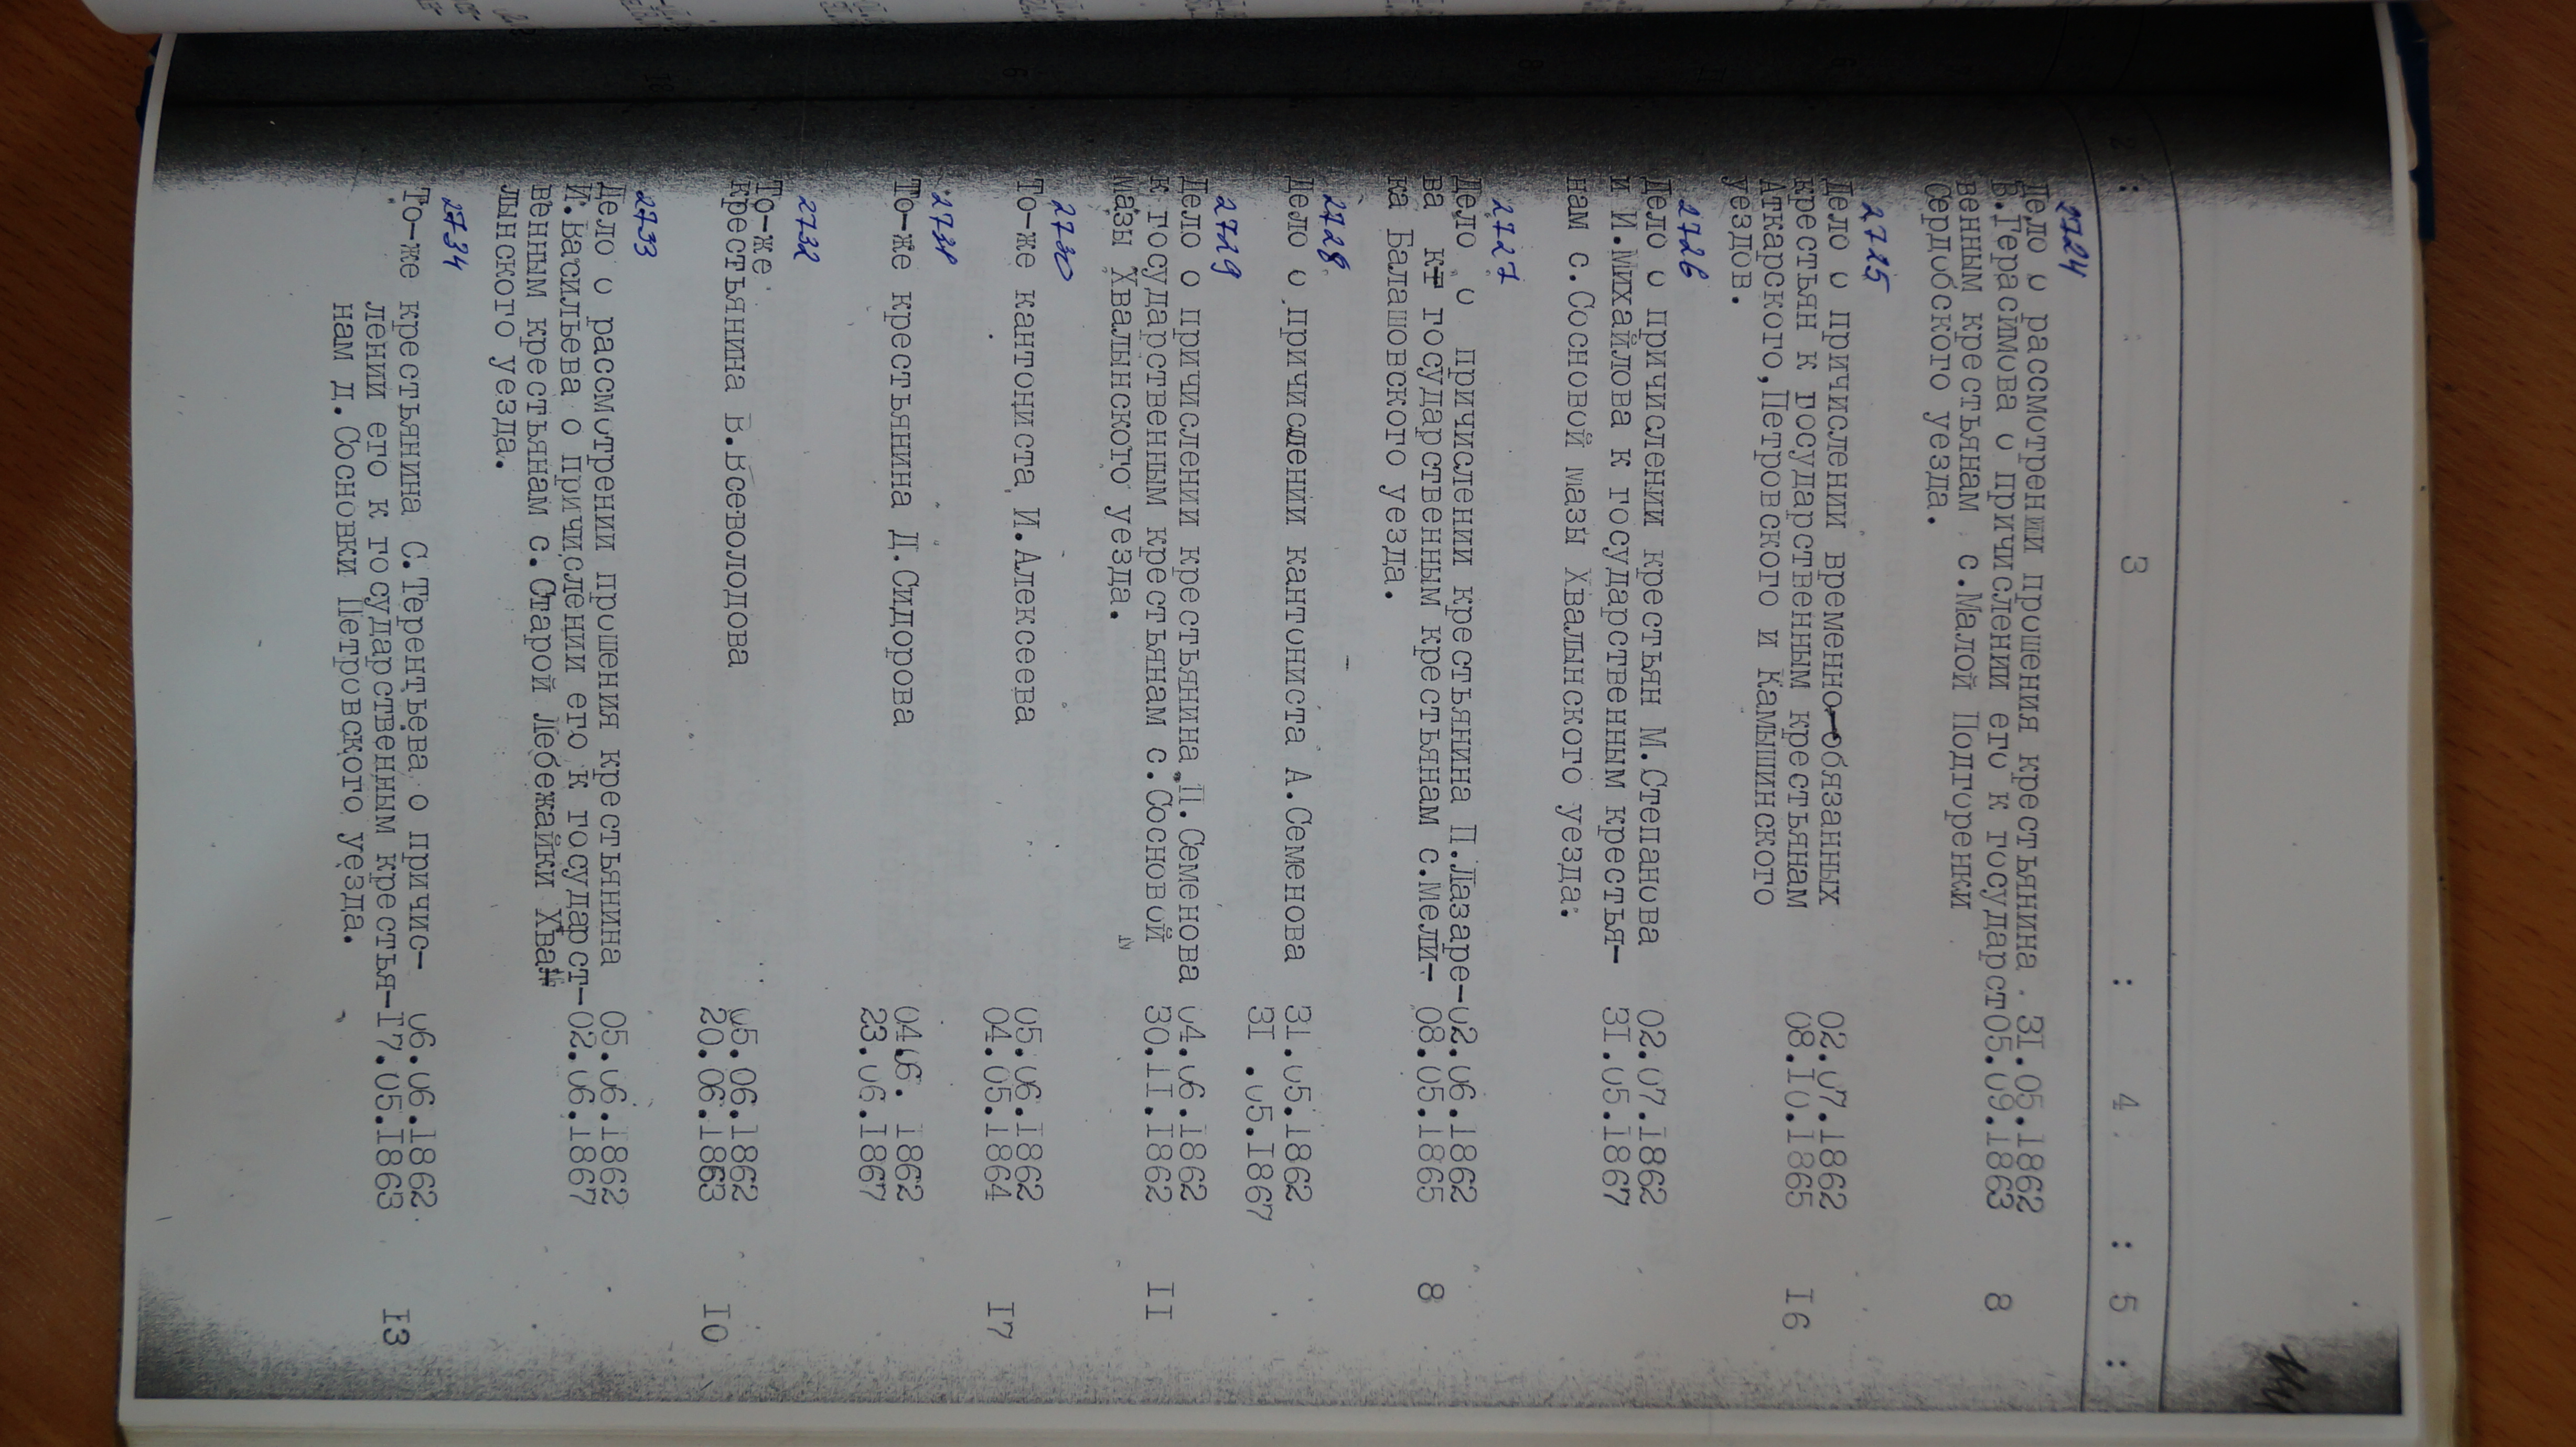 2 : 3 : 4 : 5 :
2724
Дело о рассмотрении прошения крестьянина 31.05.1862
В.Герасимова о причислении его к государст05.09.1863 8
венным крестьянам с.Малой Подгоренки
Сердобского уезда.
2725
Дело о причислении временно-обязанных 02.07.1862
крестьян к государственным крестьянам 08.10.1865 16
Аткарского,Петровского и Камышинского
уездов.
2726
Дело о причислении крестьян М.Степанова 02.07.1862
и И.Михайлова к государственным крестья- 31.05.1867
нам с.Сосновой мазы Хвалынского уезда.
2727
Дело о причислении крестьянина П.Лазаре-02.06.1862
ва к государственным крестьянам с.Мели- 08.05.1865 8
ка Балашовского уезда.
2728
Дело о причислении кантониста А.Семенова 31.05.1862
31 .05.1867
2729
Дело о причислении крестьянина П.Семенова 04.06.1862
к государственным крестьянам с.Сосновой 30.11.1862 11
мазы Хвалынского уезда.
2730
То-же кантониста И.Алексеева 05.06.1862
04.05.1864 17
2731
То-же крестьянина Д.Сидорова 04.06. 1862
23.06.1867
2732
То-же 05.06.1862
крестьянина В.Всеволодова 20.06.1863 10
2733
Дело о рассмотрении прошения крестьянина 05.06.1862
И.Васильева о причислении его к государст-02.06.1867
венным крестьянам с.Старой Лебежайки Хва
лынского уезда.
2734
То-же крестьянина С.Терентьева о причис- 06.06.1862
лении его к государственным крестья-17.05.1863 13
нам д.Сосновки Петровского уезда.